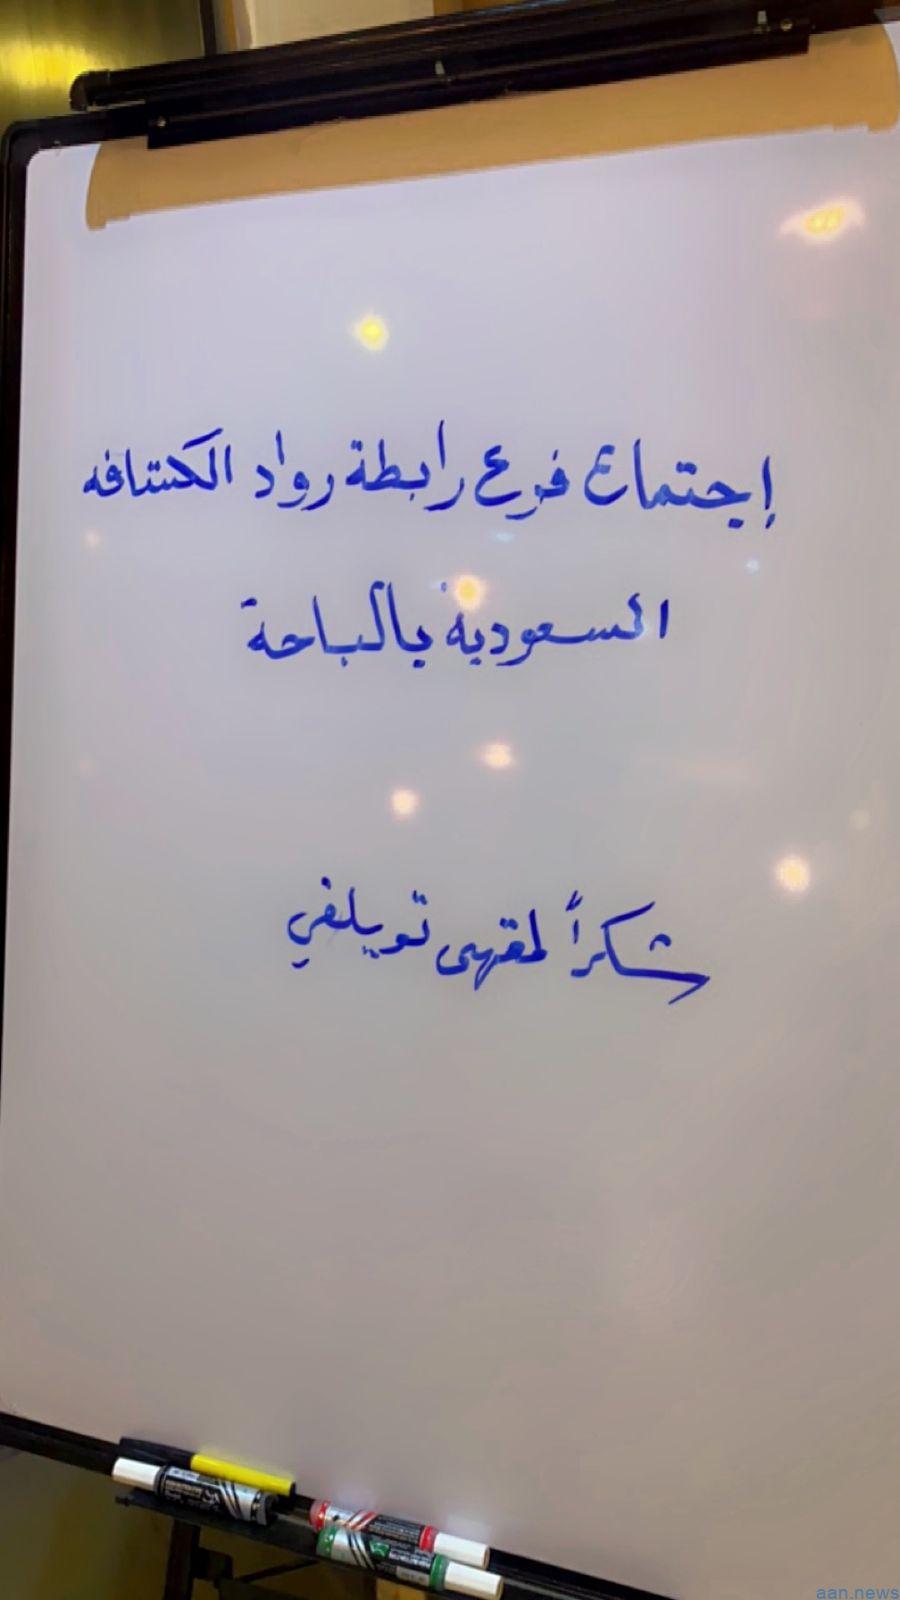 إجتماع فرع رابطة رواد الكشافه
السعودية بالباحة
شكراً لمقهى تويلفي
aan.news